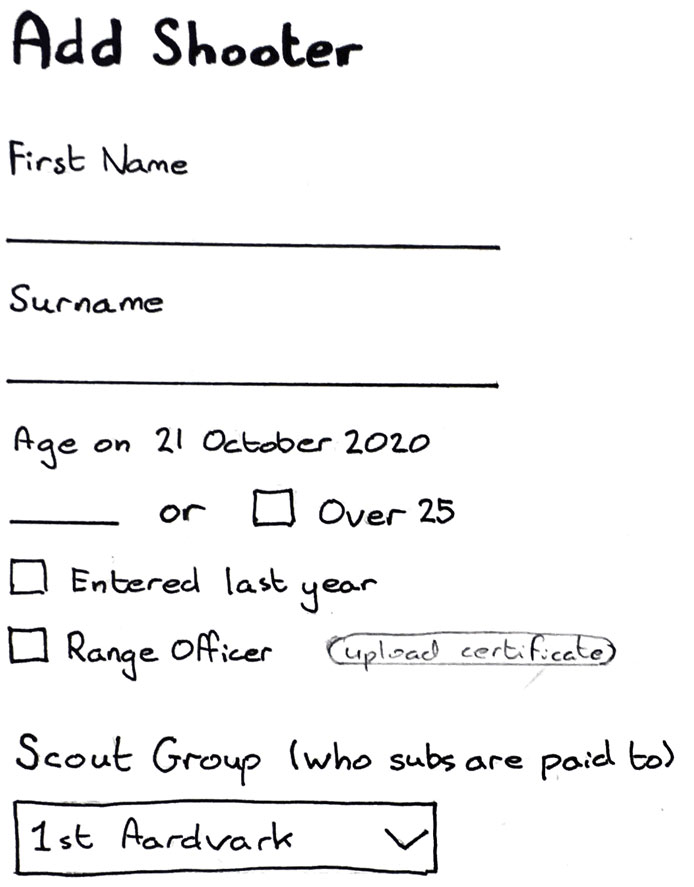 Add Shooter
First Name
Surname
Age on 21 October 2020
or Over 25
Entered last year
Range Officer upload certificate
Scout Group (who subs are paid to)
1st Aardvark